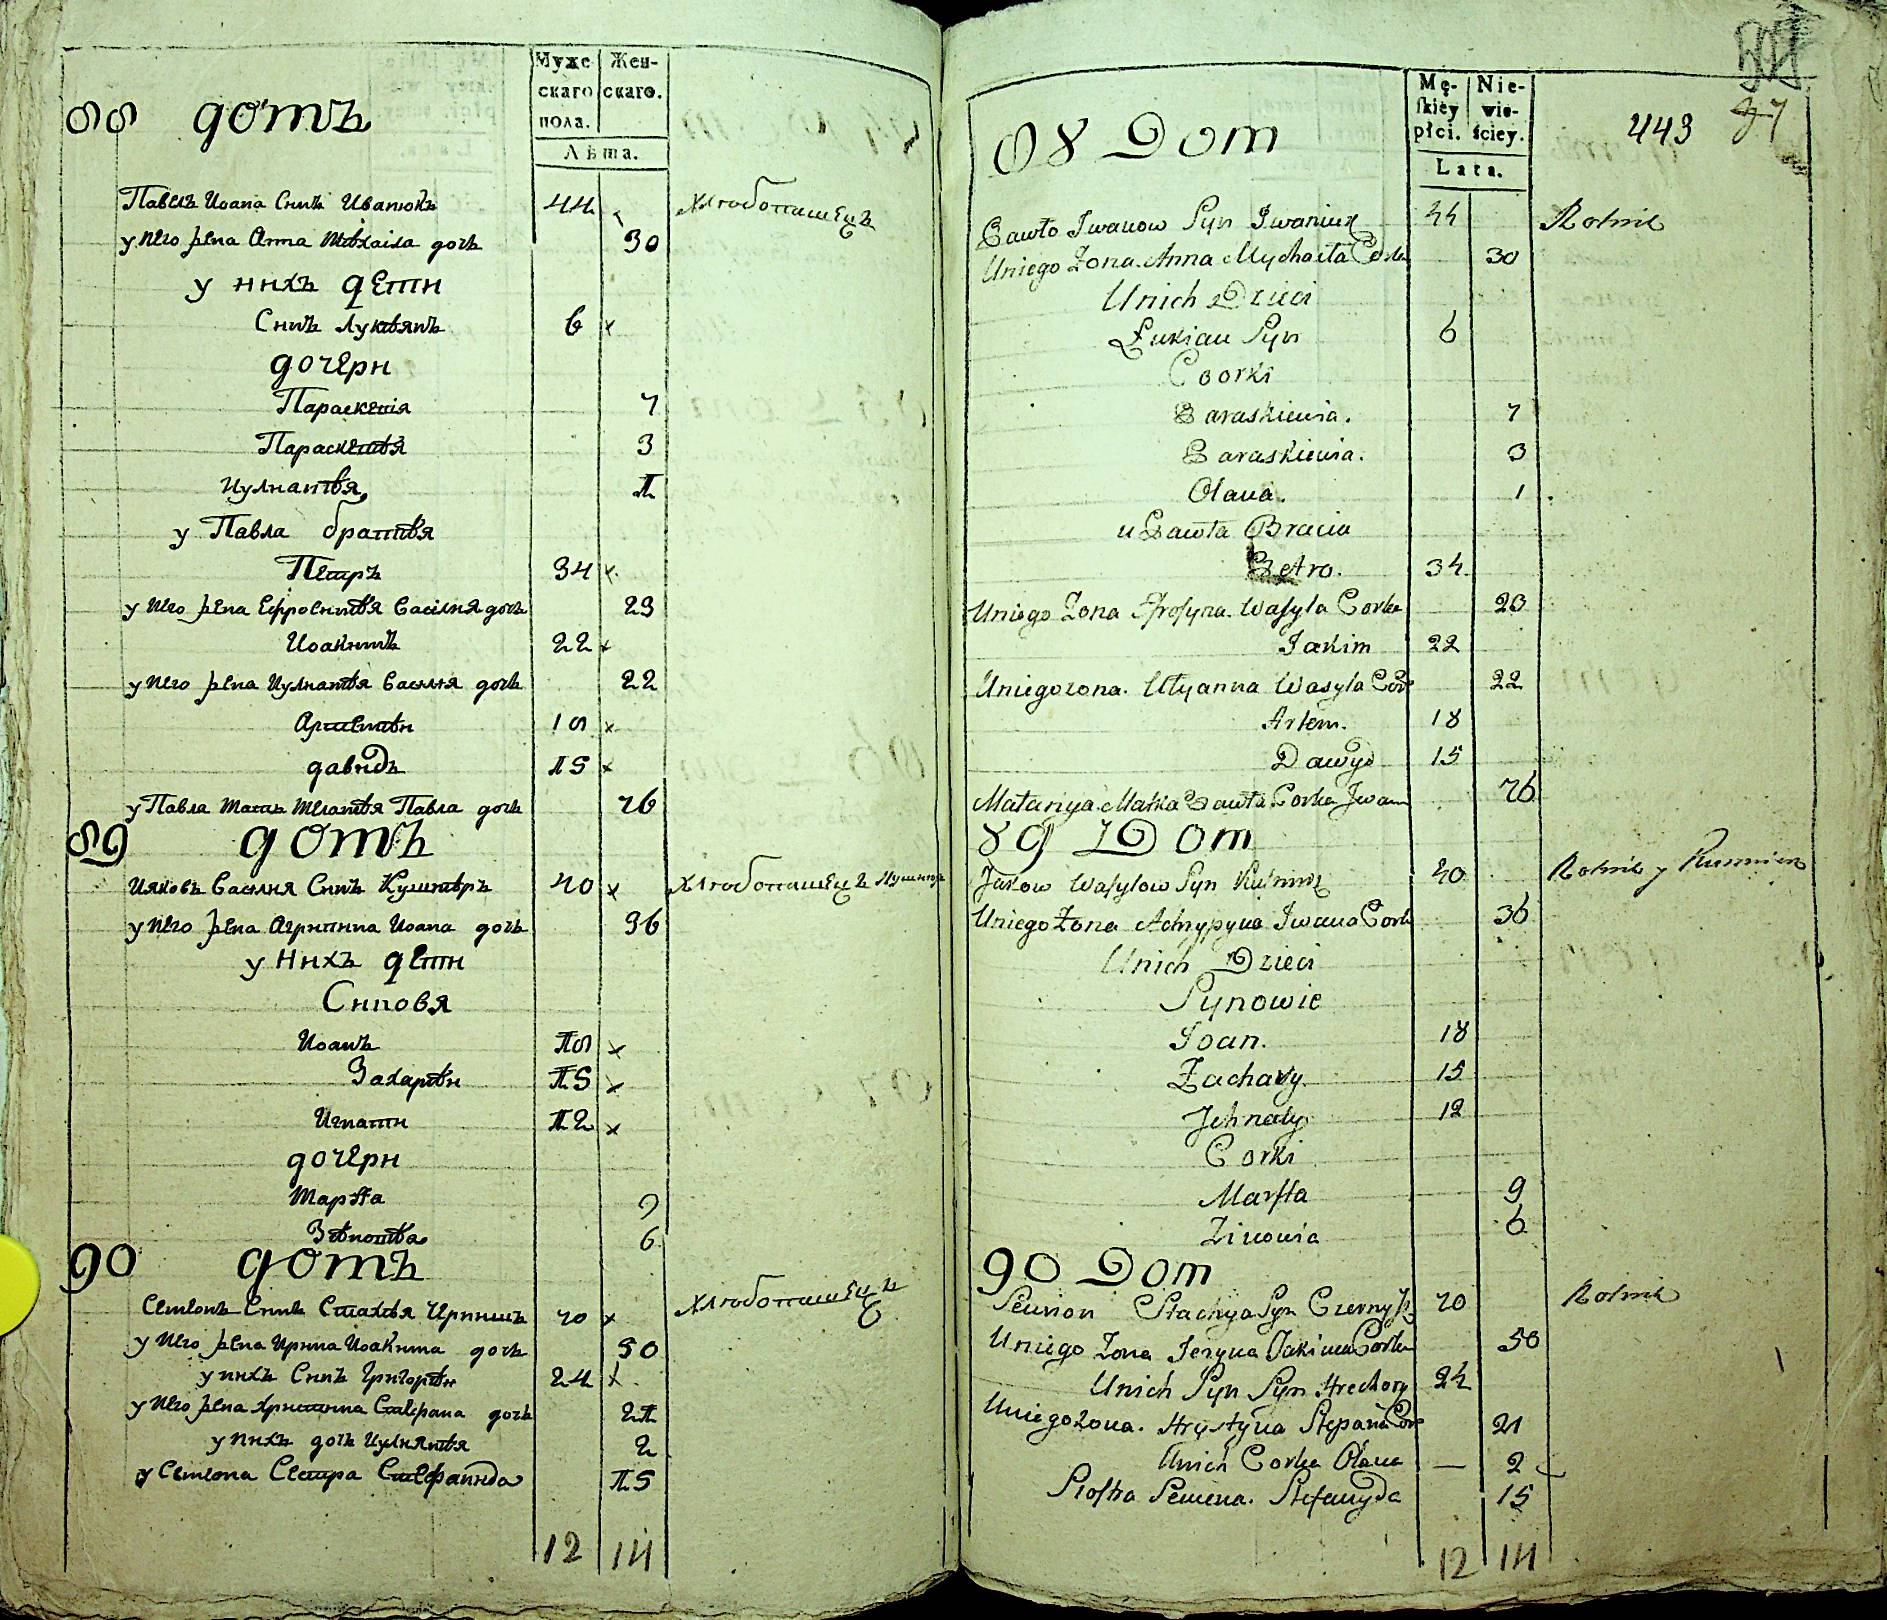 Муже Жен-
скаго скаго.
пола.
Лѣта.
88 домъ
Павелъ Иоана Синъ Иванюкъ 44 Хлѣбопашецъ
у него жена Анна Михаила дочь 30
у нихъ дети
Синъ Лукиянъ 6 x
дочери
Параскевія 7
Параскевия 3
Иулиания 1
у Павла братия
Петръ 34 x
у него жена Ефросиния Василия дочь 23
Иоакимъ 22 x
у него жена Иулиания Василия дочь 22
Артемий 18 x
давидъ 15 x
у Павла мать Мелания Павла дочь 76
89 домъ
Ияковъ Василия Синъ Кушниръ 40 x Хлѣбопашецъ
у него жена Агрипина Иоана дочь 36
у нихъ дети
Синовя
Иоанъ 18 x
Захарий 15 x
Игнатий 12 x
дочери
Марфа 9
Зиновия 6
90 домъ
Семіонъ Синъ Стахія Чернишъ 70 x Хлѣбопашецъ
у него жена Ирина Иоакима дочь 50
у нихъ Синъ Григорий 24 x
у него жена Христина Стефана дочь 21
у нихъ дочь Иулияния 2
у Семіона Сестра Стефанида 15
12 14
Mę- Nie-
skiey wie-
płci. ściey.
Lata.
443
88 Dom
Pawło Iwanow Syn Iwaniuk 44 Rolnik
Uniego Zona Anna Mychaiła Corka 30
Unich Dzieci
Łukian Syn 6
Coorki
Paraskiewia. 7
Paraskiewia. 3
Olana. 1
u Pawła Bracia
Petro. 34
Uniego Zona Afrosyna Wasyla Corka 23
Jakim 22
Uniego zona. Ulyanna Wasyla Cor 22
Artem. 18
Dawyd 15
Małanya Matka Pawła Corka Iwan 76
89 Dom
Jakow Wasylow Syn Kusznir 40 Rolnik y Kusznierz
Uniego Zona Achrypyna Iwana Cork 36
Unich Dzieci
Synowie
Joan. 18
Zachary. 15
Jehnaty 12
Corki
Marfta 9
Zinowia 6
90 Dom
Semion Stachya Syn Czernysz 70 Rolnik
Uniego Zona Jeryna Jakima Corka 50
Unich Syn Syn Hrechory 24
Uniego zona. Hrystyna Stepana Cor 21
Unich Corka Olana — 2
Siostra Semena. Stefanyda 15
12 14